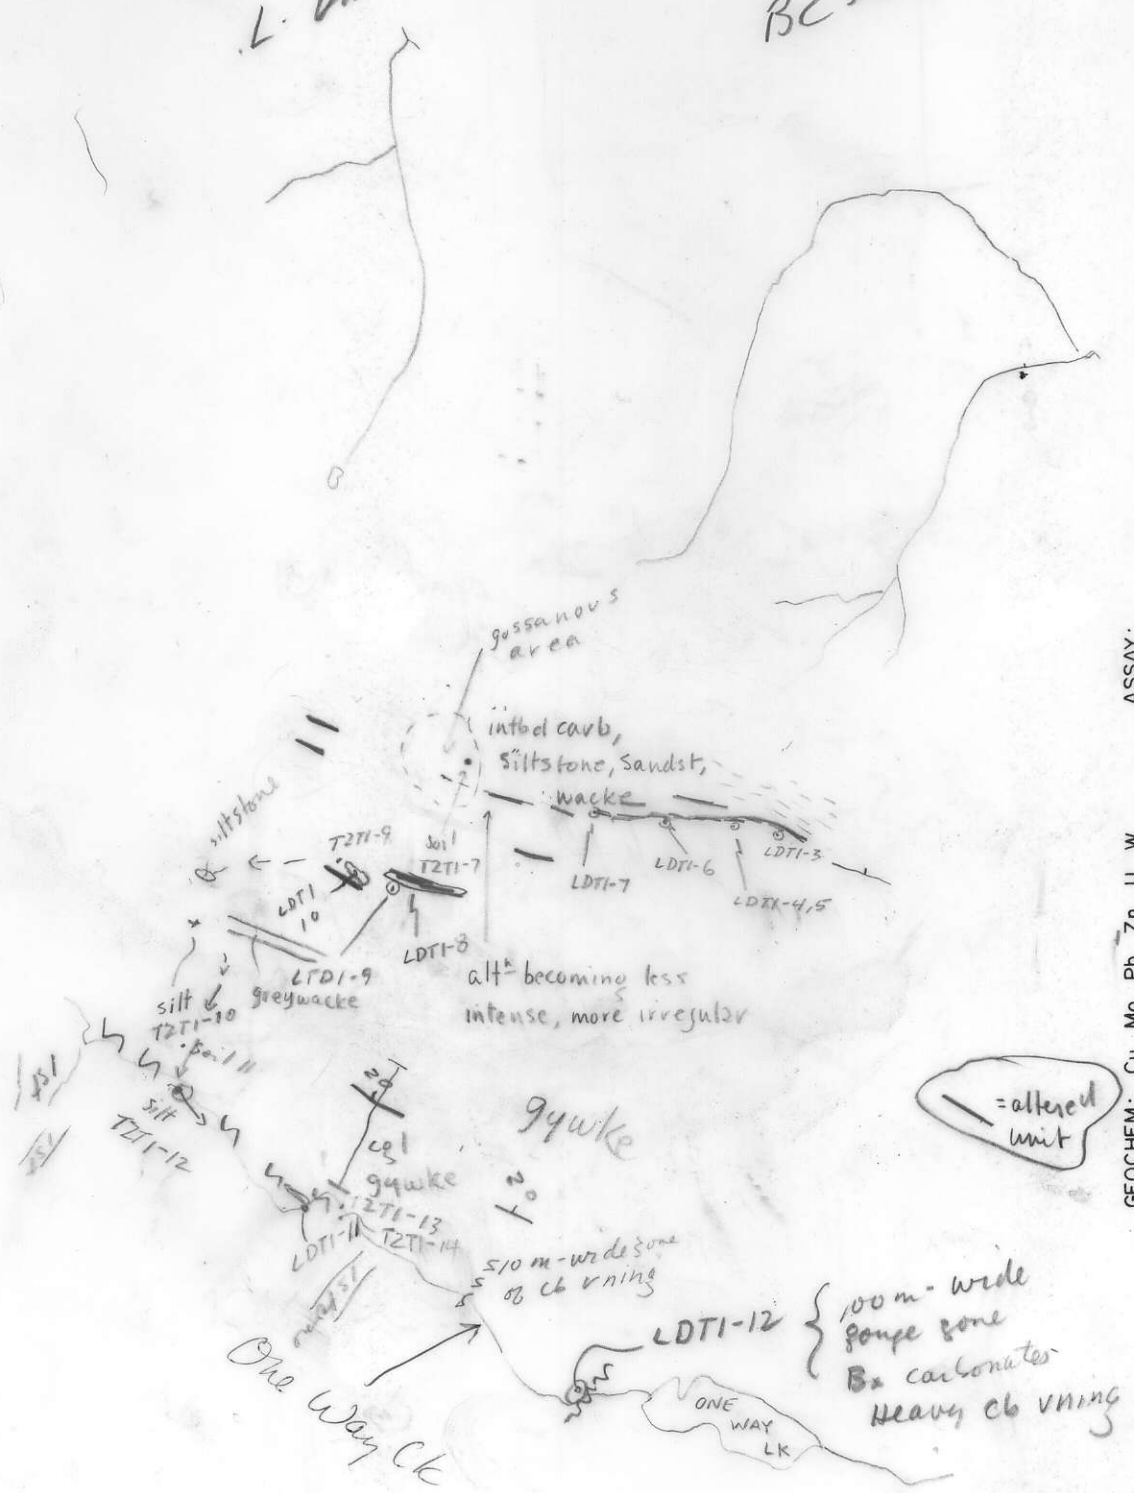 L.
BC
gossanous
area
intbd carb,
siltstone, Sandst,
wacke
siltstone
T2T1-9
soil
T2T1-7
LDT1
10
LDT1-7
LDT1-6
LDT1-3
LDT1-4,5
LDT1-8
LTD1-9
greywacke
altn becoming less
intense, more irregular
silt
T2T1-10
soil 11
silt
T2T1-12
20
cgl
gywke
gywke
20
T2T1-13
T2T1-14
LDT1-11
510 m-wide zone
of cb vning
LDT1-12
100 m-wide
gouge zone
Bx carbonates
Heavy cb vning
One Way Ck
ONE
WAY
LK
= altered
unit
ASSAY:
GEOCHEM: Cu Mo Pb Zn U W